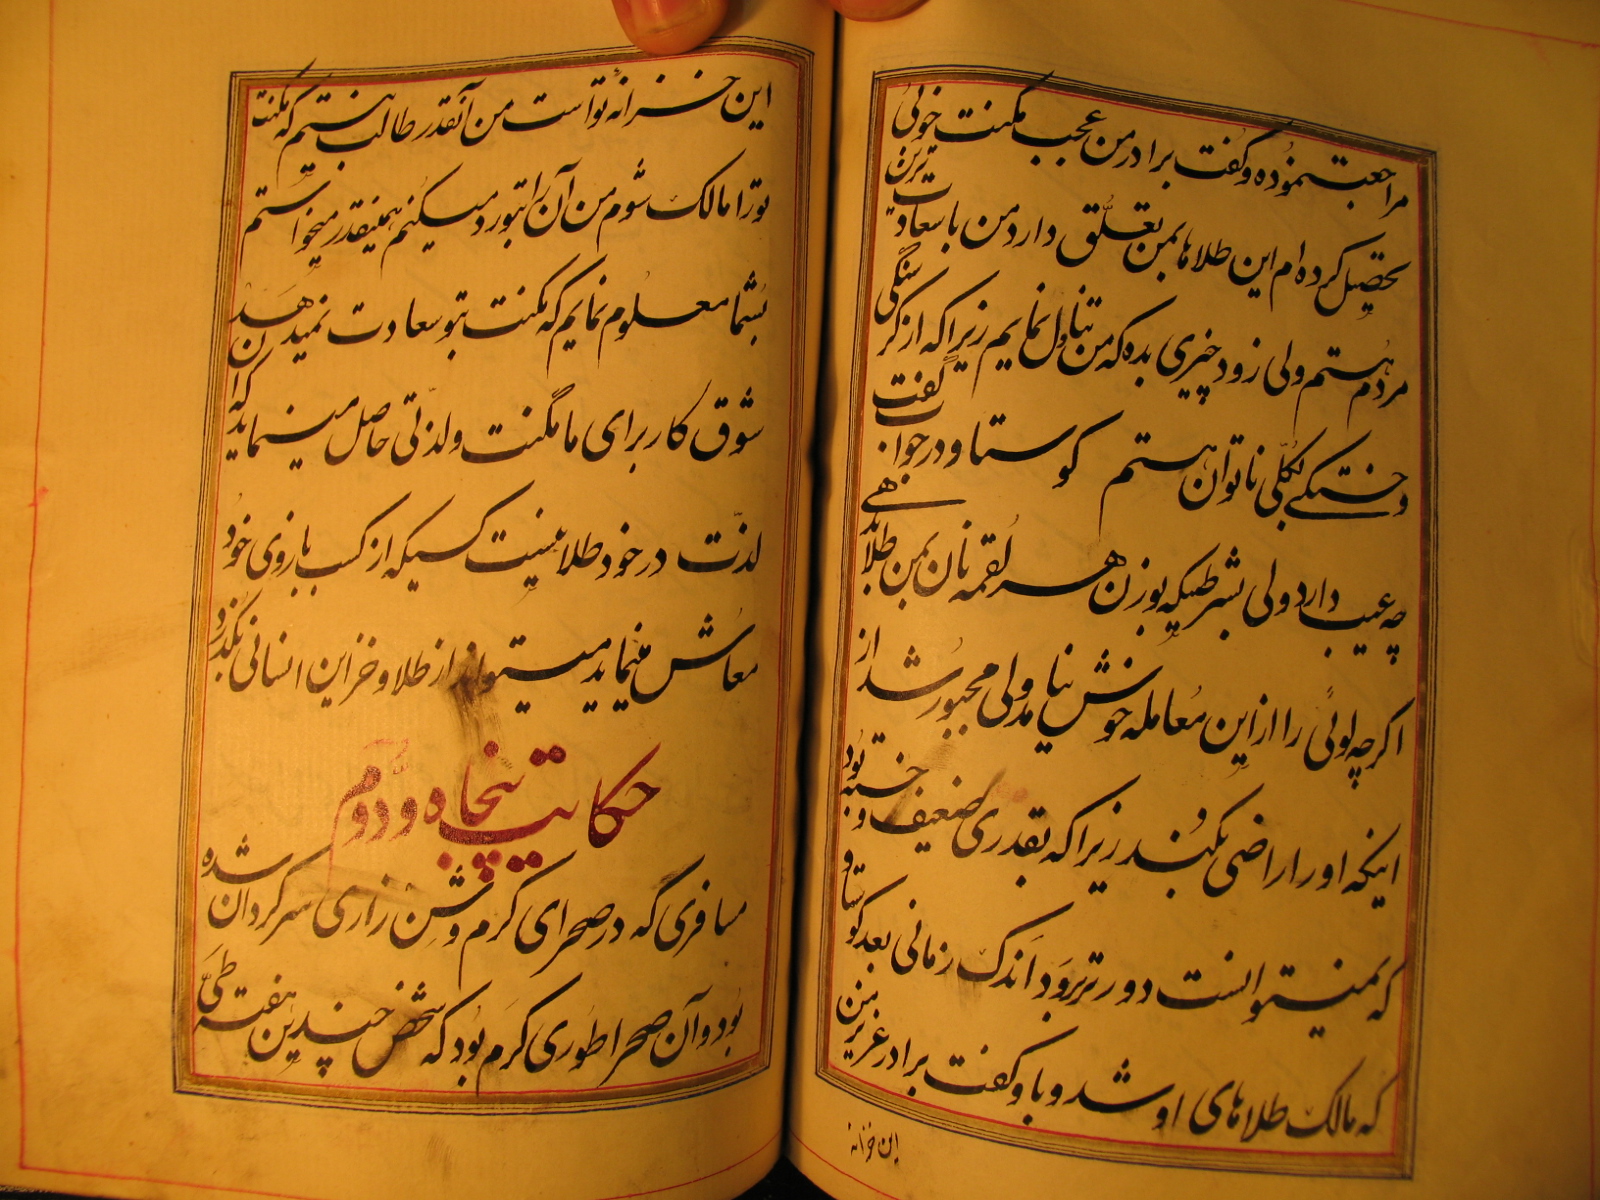 مراجعت نموده و گفت برادر من عجب مکنت خوبی
تحصیل کرده ام این طلاها بمن تعلّق دارد من با سعادت ترین
مردم هستم ولی زود چیزی بده که من تناول نمایم زیرا که از گرسنگی
و خستگی بکلّی ناتوان هستم کوستاو در جواب گفت
چه عیب دارد ولی بشرطیکه بوزن هر لقمه نان بمن طلا بدهی
اگرچه لوئی را از این معامله خوش نیامد ولی مجبور شد از
اینکه او را راضی بکند زیرا که بقدری ضعیف و خسته بود
که نمیتوانست دورتر برود اندک زمانی بعد کوستاو
که مالک طلاهای او شد و باو گفت برادر عزیز من
این خزانه
این خزانه تو است من آنقدر طالب نیستم که مکنت
تو را مالک شوم من آن را بتو رد میکنم همینقدر میخواستم
بشما معلوم نمایم که مکنت بتو سعادت نمیدهد
شوق کار برای ما مکنت و لذّتی حاصل مینماید که آن
لذّت در خود طلا نیست کسیکه از کسب بازوی خود
معاش مینماید میتواند از طلا و خزاین انسانی بگذرد
حکایت پنجاه و دوّم
مسافری که در صحرای گرم و شن زاری سرگردان شده
بود و آن صحرا طوری گرم بود که شخص چندین هفته طیّ